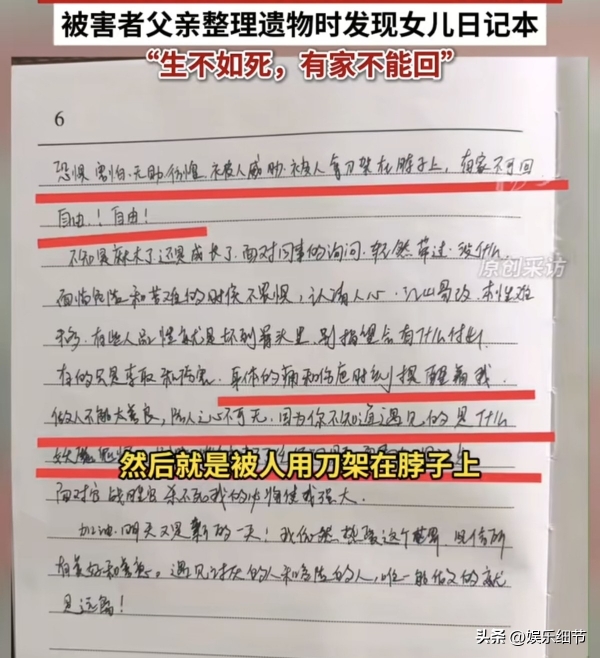 被害者父亲整理遗物时发现女儿日记本
“生不如死，有家不能回”
6
恐惧 害怕 无助 彷惶 被人威胁 被人拿刀架在脖子上，有家不可回
自由！自由！
不知是麻木了还是成长了 面对同事的询问 轻然带过 没什么
原创采访
面临危险和苦难的时候不畏惧，认清人心 江山易改 本性难
移 有些人品性就是坏到骨头里 别指望会有什么付出
有的只是索取和伤害 身体的痛和伤疤时刻提醒着我
做人不能太善良，防人之心不可无 因为你不知道遇见的是什么
妖魔鬼怪
然后就是被人用刀架在脖子上
面对它 战胜它 杀不死我的必将使我强大
加油 明天又是新的一天！我依然热爱这个世界 坚信所
有美好和善意 遇见讨厌的人和危险的人，唯一能做的就
是远离！
头条 @娱乐细节